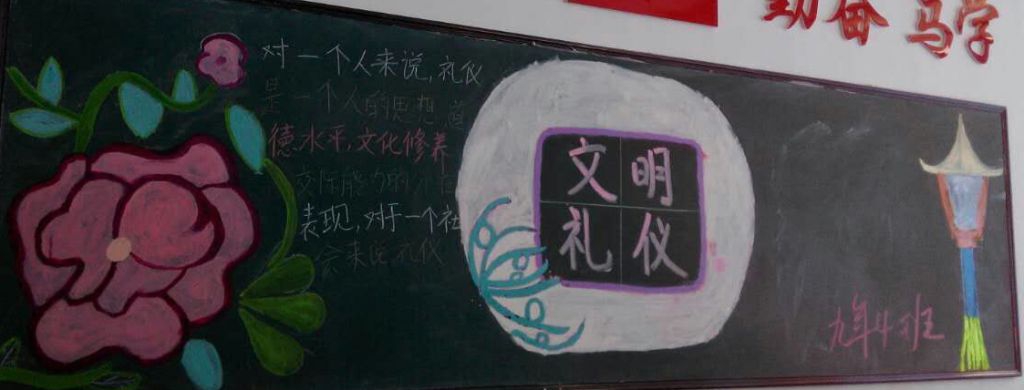 勤奋 马学
对一个人来说,礼仪
是一个人的思想道
德水平,文化修养
交际能力的外在
表现,对于一个社
会来说礼仪
文明
礼仪
九年4班